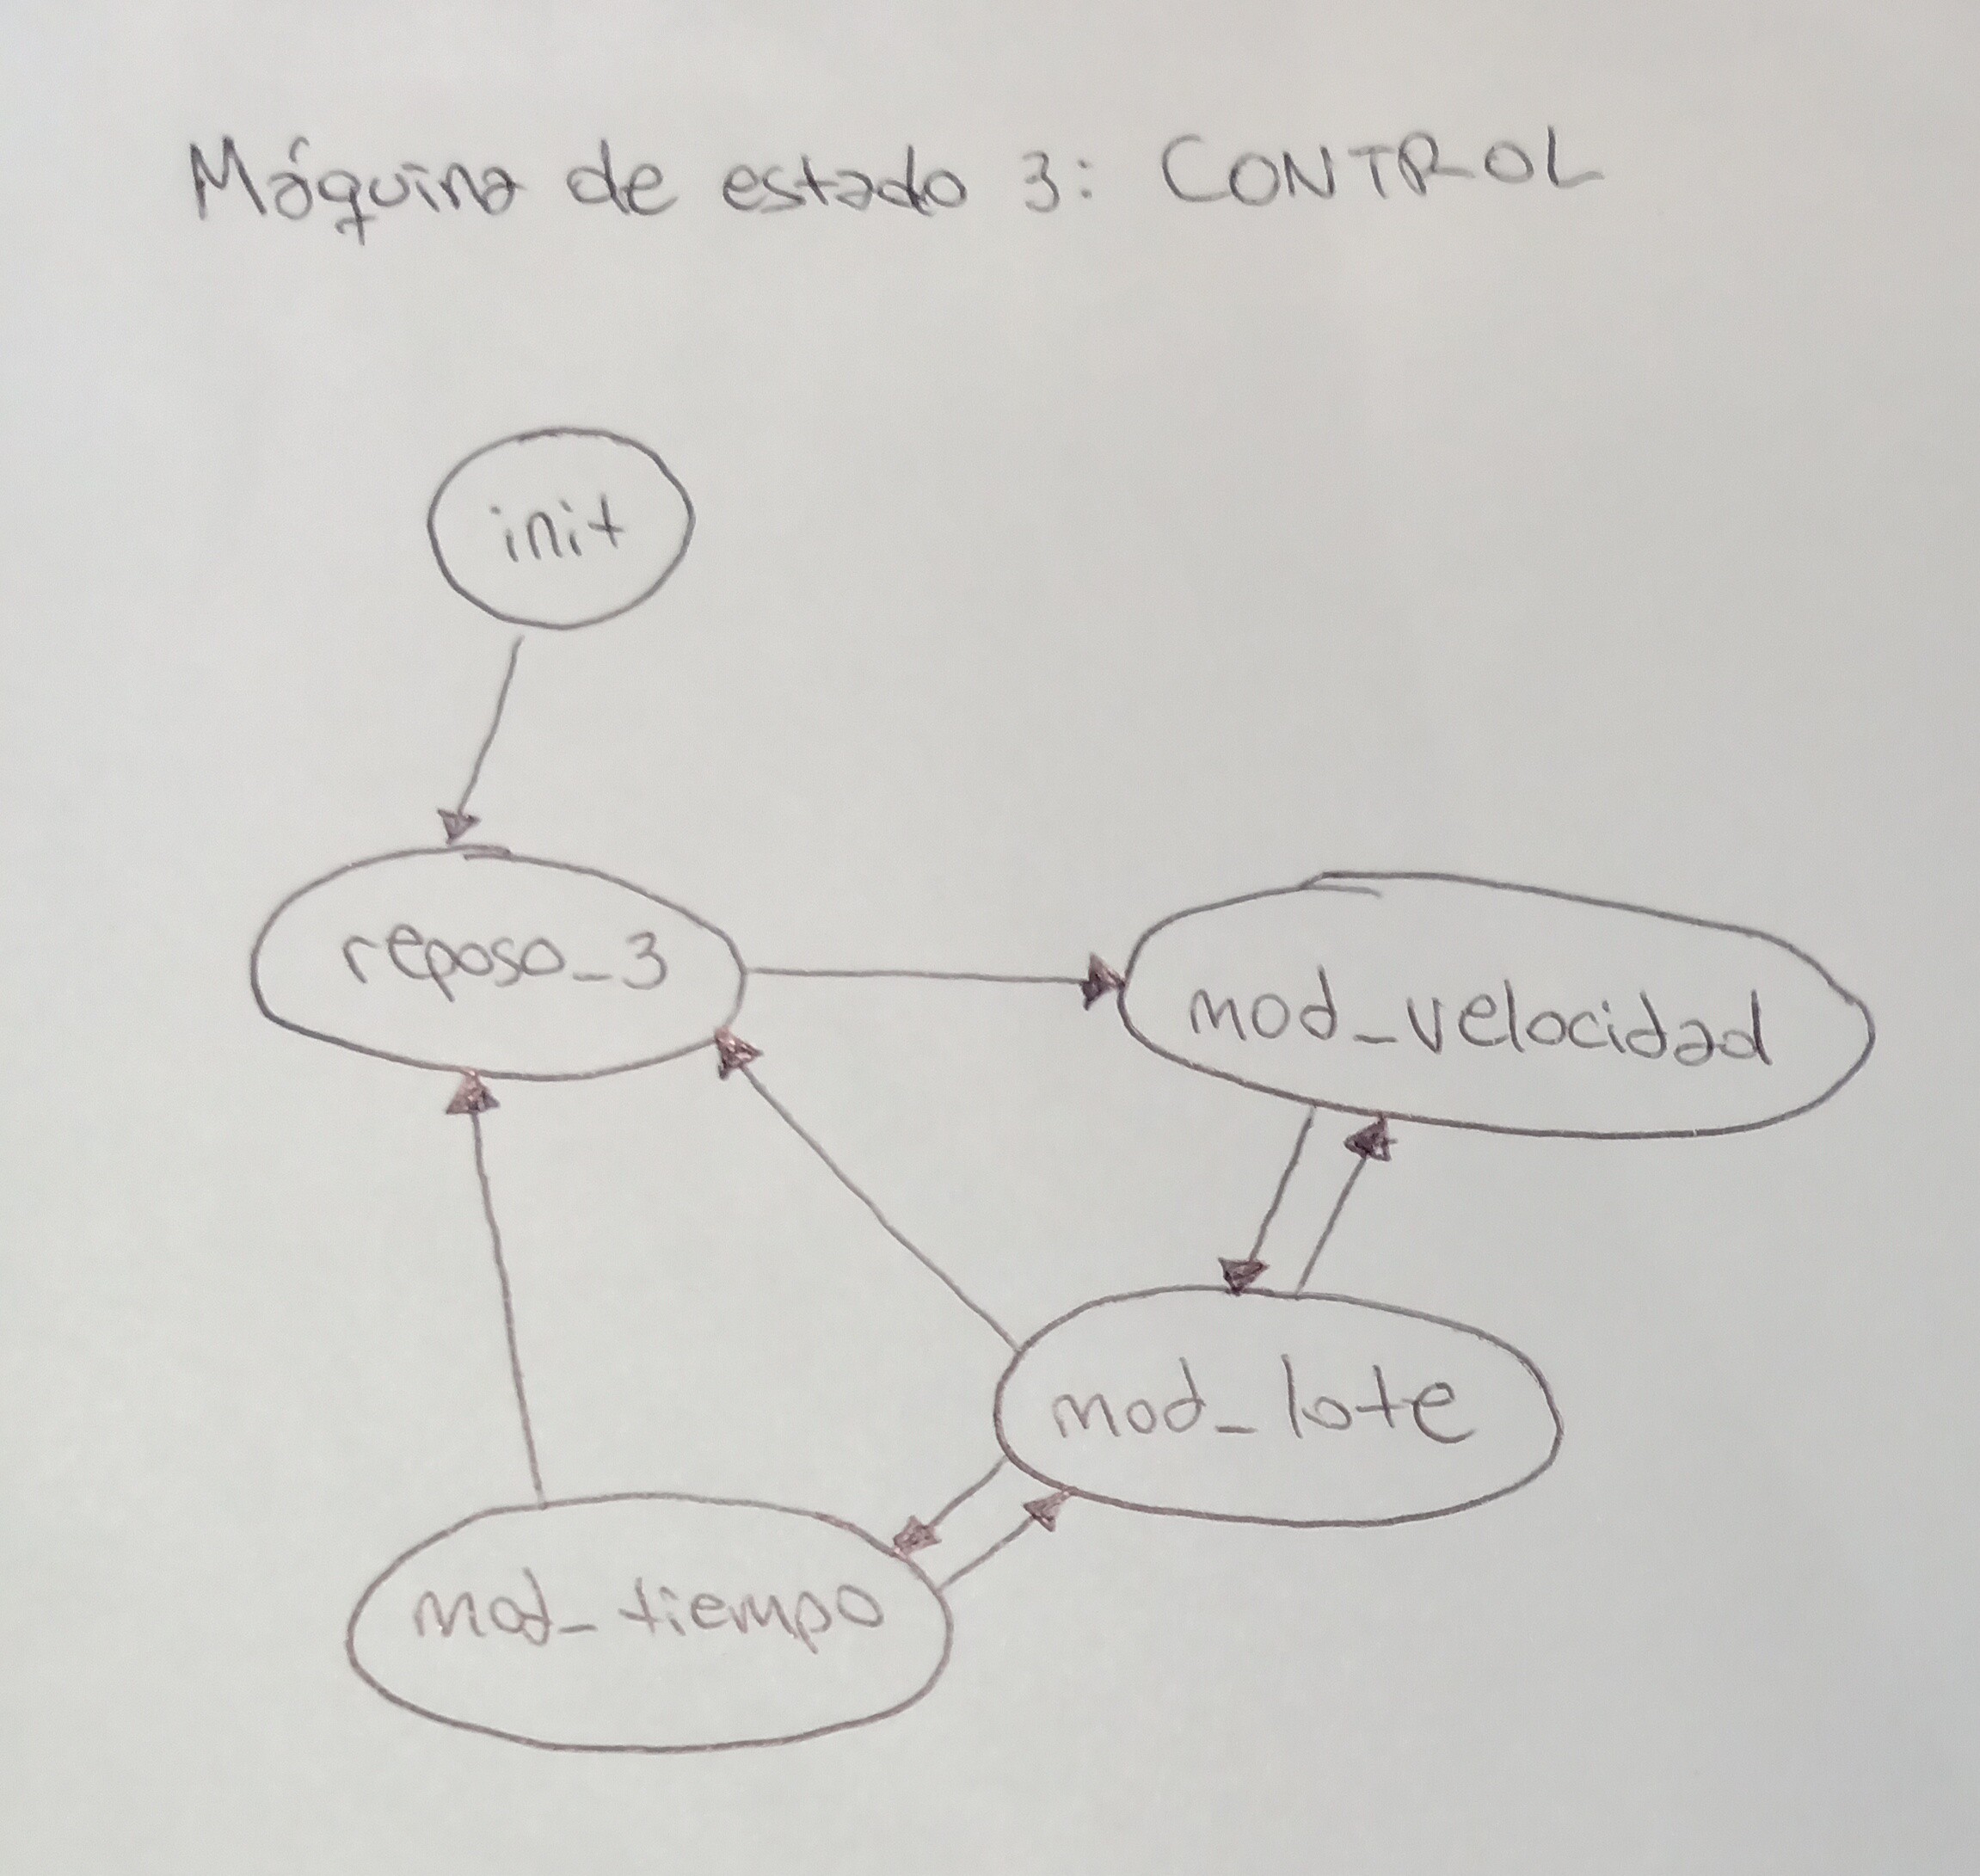 Máquina de estado 3: CONTROL
init
reposo_3
mod_velocidad
mod_lote
mod_tiempo